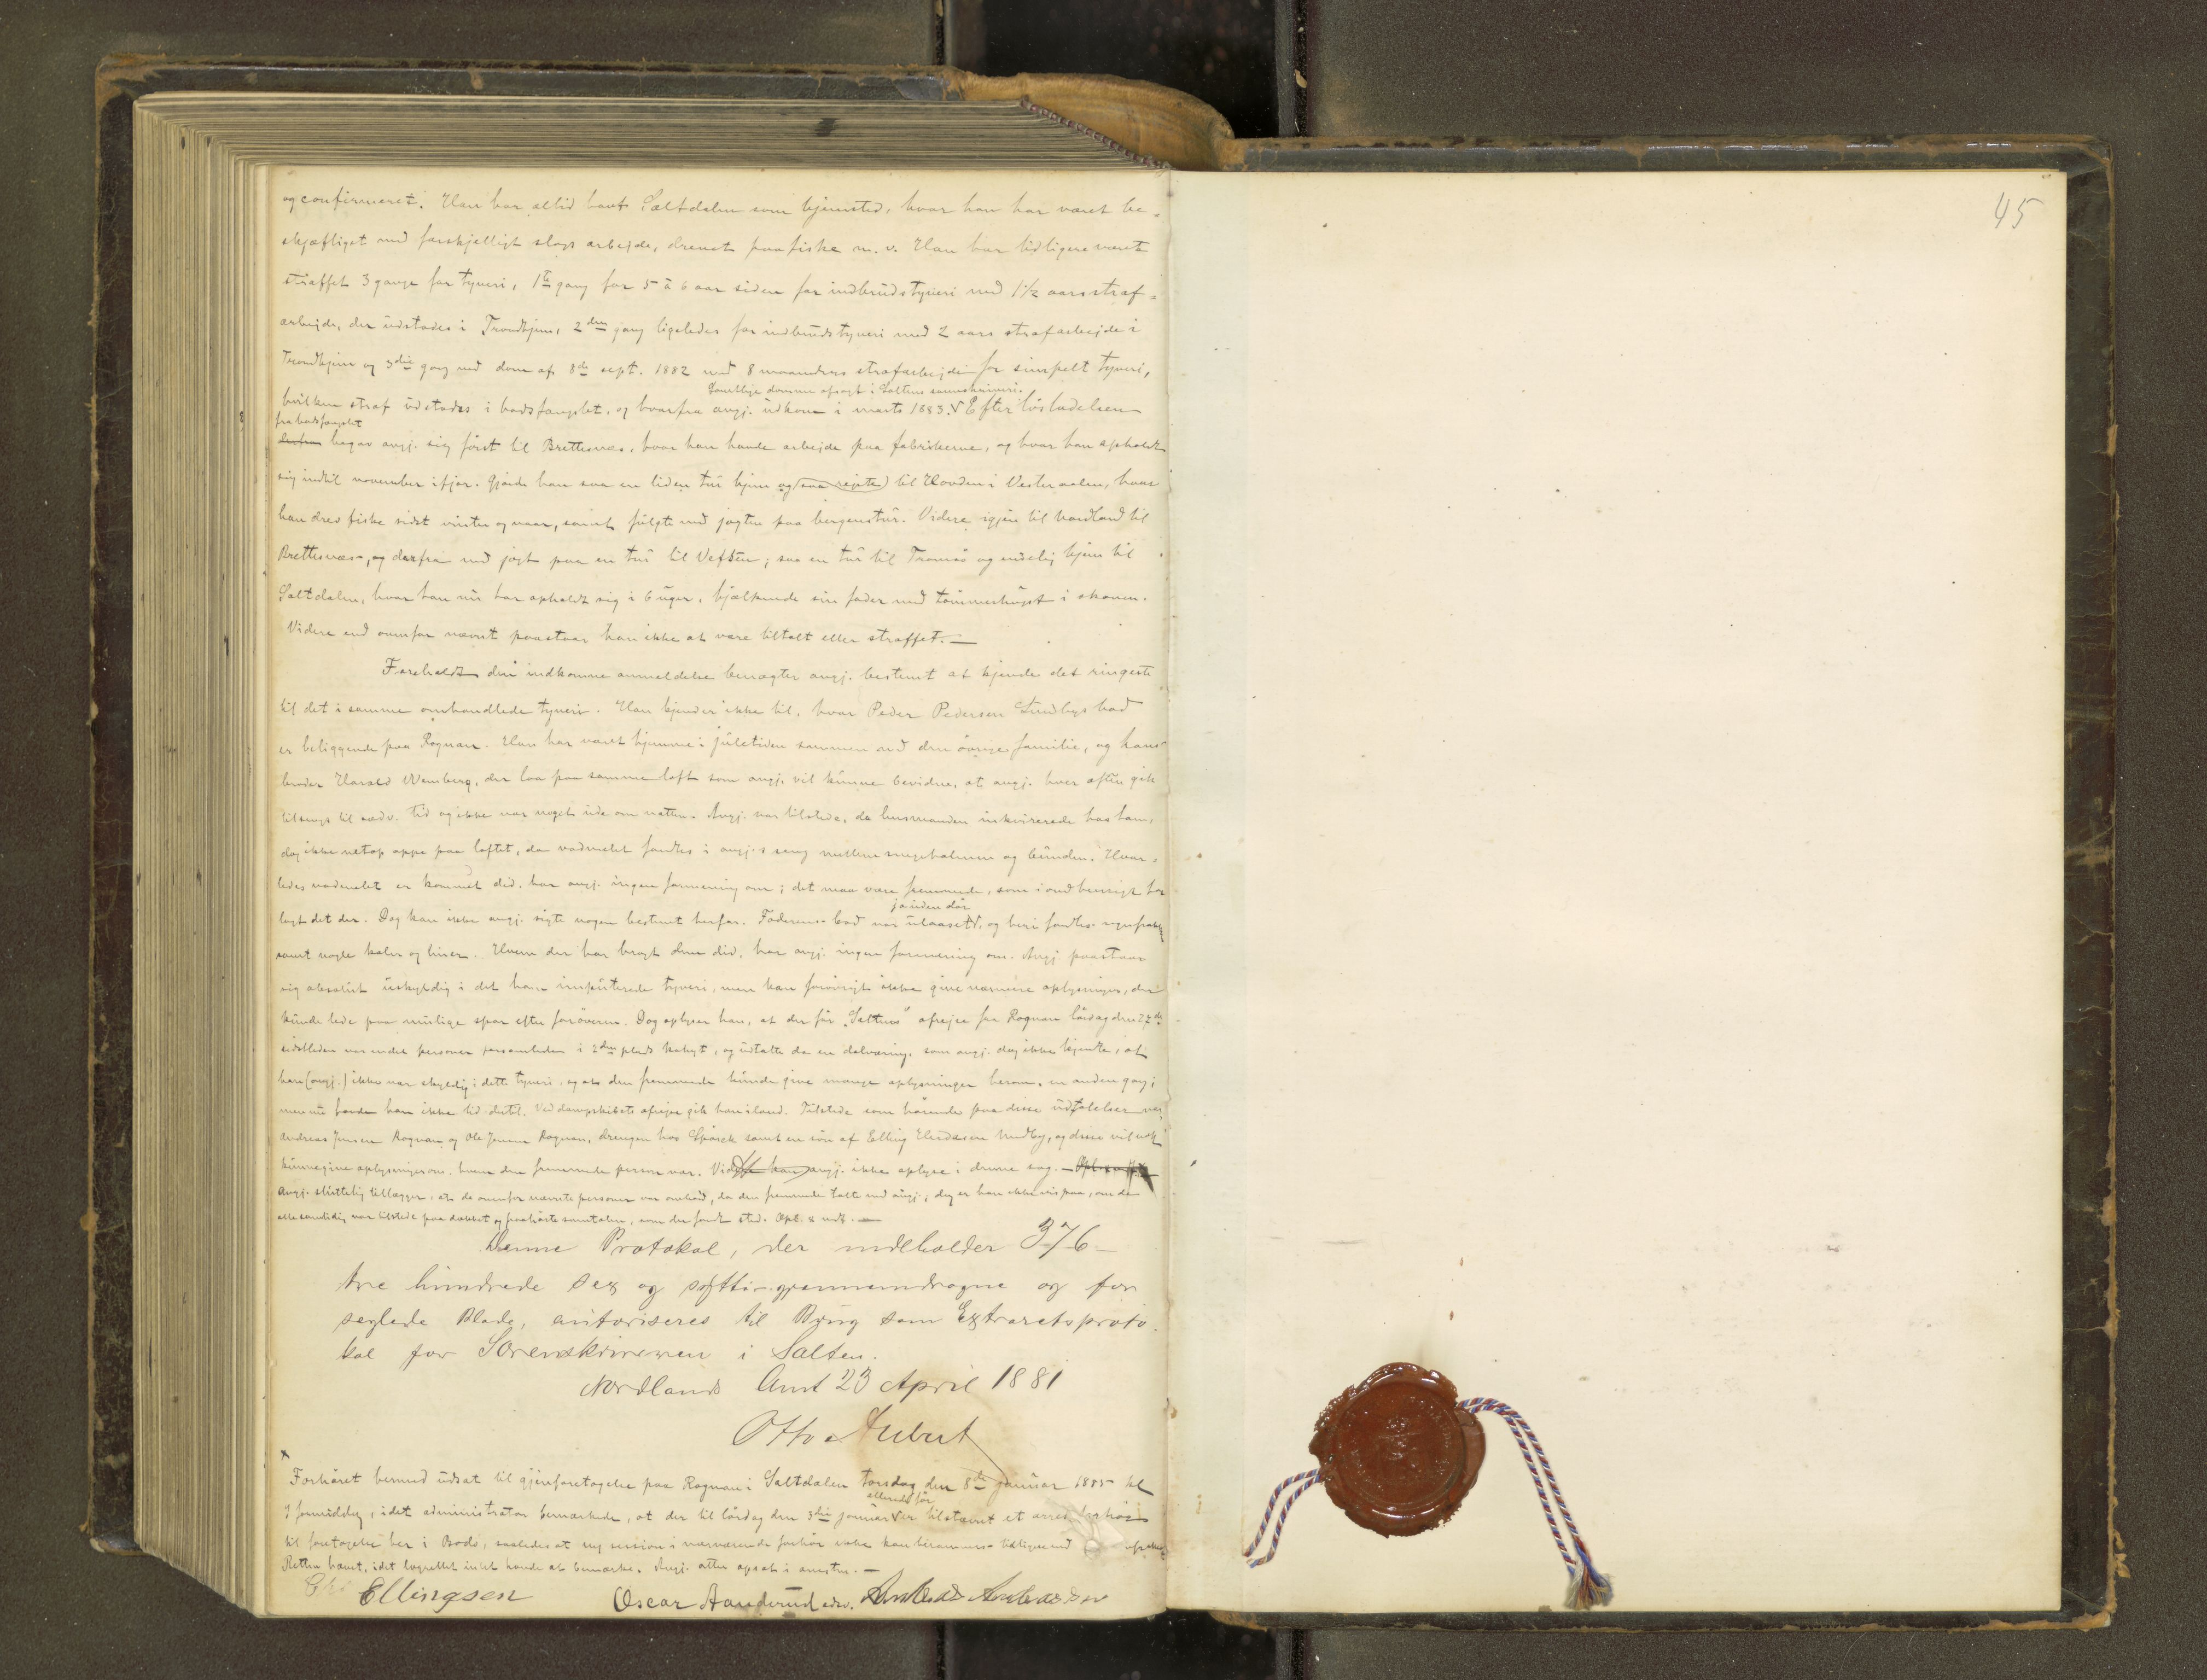 og confirmeret. Han har altid havt Saltdalen som hjemsted, hvor han har været be-
skjæftiget med forskjelligt slags arbejde, drevet paa fiske m. v. Han har tidligere været
straffet 3 gange for tyveri, 1ste gang for 5 à 6 aar siden for indbrudstyveri med 1 1/2 aars straf-
arbejde, der udstodes i Trondhjem, 2den gang ligeledes for indbrudstyveri med 2 aars strafarbejde i
Trondhjem og 3die gang ved dom af 8de sept. 1882 med 8 maaneders strafarbejde for simpelt tyveri,
Samtlige domme afsagt i Saltens sorenskriveri.
hvilken straf udstodes i bodsfængslet, og hvorfra angj. udkom i marts 1883. Efter løsladelsen
fra bodsfængslet
derfra begav angj. sig først til Brettesnæs, hvor han havde arbejde paa fabrikerne, og hvor han opholdt
sig indtil november ifjor. Gjorde han saa en liden tur hjem og (saa rejste) til Hovden i Vesteraalen, hvor
han drev fiske sidst vinter og vaar, samt fulgte med jagten paa bergenstur. Videre igjen til Nordland til
Brettesnæs, og derfra med jagt paa en tur til Vefsen; saa en tur til Tromsø og endelig hjem til
Saltdalen, hvor han nu har opholdt sig i 6 uger, hjælpende sin fader med tømmerhugst i skoven.
Videre end ovenfor nævnt paastaar han ikke at være tiltalt eller straffet. —
Foreholdt den indkomne anmeldelse benægter angj. bestemt at kjende det ringeste
til det i samme omhandlede tyveri. Han kjender ikke til, hvor Peder Pedersen Sundbys bod
er beliggende paa Rognan. Han har været hjemme i juletiden sammen med den øvrige familie, og hans
broder Harald Wemberg, der laa paa samme loft som angj. vil kunne bevidne, at angj. hver aften gik
tilsengs til sædv. tid og ikke var noget ude om natten. Angj. var tilstede, da lensmanden inkvirerede hos ham,
dog ikke netop oppe paa loftet, da vadmelet fandtes i angj.s seng mellem sengehalmen og bunden. Hvor-
ledes vadmelet er kommet did, har angj. ingen formening om; det maa være fremmede, som i ond hensigt har
ja uden dør
lagt det der. Dog kan ikke angj. sigte nogen bestemt herfor. Faderens bod var ulaaset, og heri fandtes
samt nogle kaler og liner. Hvem der har bragt dem did, har angj. ingen formening om. Angj. paastaar
sig absolut uskyldig i det ham imputerede tyveri, men kan forøvrigt ikke give nærmere oplysninger, der
kunde lede paa mulige spor efter forøveren. Dog oplyser han, at der før "Saltens" afrejse fra Rognan lørdag den 27de
sidstleden var endel personer forsamlede i 2den plads kahyt, og udtalte da en dølværing, som angj. dog ikke kjendte, at
han (angj.) ikke var skyldig i dette tyveri, og at den fremmede kunde give mange oplysninger herom en anden gang;
men nu havde han ikke tid dertil. Ved dampskibets afrejse gik han iland. Tilstede som hørende paa disse udtalelser var
Andreas Jensen Rognan og Ole Jensen Rognan, drengen hos Spørck samt en søn af Elling Undby, og disse vil nok
kunne give oplysninger om, hvem den fremmede person var. Videre kan angj. ikke oplyse i denne sag. —
Angj. sluttelig tillægger, at de ovenfor nævnte personer var ombord, da den fremmede talte med angj.; dog er han ikke vis paa, om de
alle samtidig var tilstede paa dækket og paahørte samtalen, som der fandt sted. Opl. & vedt. —
Denne Protokol, der indeholder 376 —
tre hundrede sex og sytti – gjennemdragne og for
seglede Blade, autoriseres til Brug som Extraretsproto
kol for Sorenskriveren i Salten.
Nordlands Amt 23 April 1881
Otto Aubert
Forhøret herved udsat til gjenforetagelse paa Rognan i Saltdalen torsdag den 8de januar 1885 kl
allerede før
9 formiddag, idet administrator bemærkede, at der til lørdag den 3die januar er tilstævnt et
til foretagelse her i Bodø, saaledes at ny session i nærværende forhør ikke kan berammes tidligere end
Retten hævet, idet lagrettet intet havde at bemærke. Angj. atter afsat i arresten. —
Chr Ellingsen Oscar Aanderud edsv. Andreas Andreassen
45